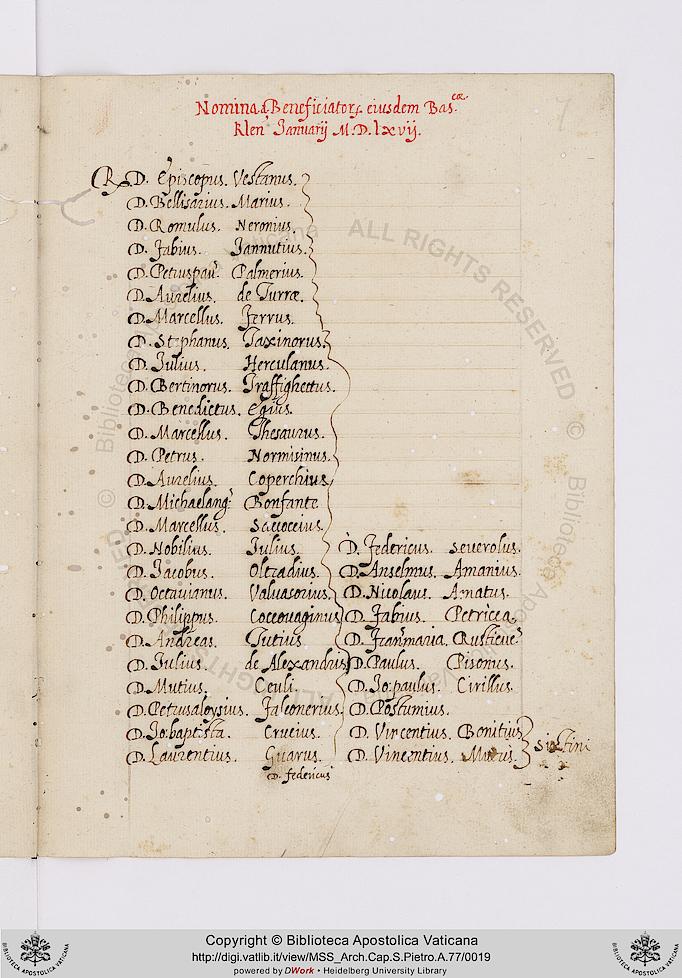 Nomina d. Beneficiatorȝ eiusdem Bas.cæ
Klen. Januarij M.D.lxvij.
7
R. D. Episcopus. Vestanus.
D. Bellisarius. Marius.
D. Romulus. Neronius.
D. Fabius. Jannutius.
D. Petruspau. Palmerius.
D. Aurelius. de Turræ.
D. Marcellus. Ferrus.
D. Stephanus. Taxinorus.
D. Julius. Herculanus.
D. Bertinorus. Traffighettus.
D. Benedictus. Egius.
D. Marcellus. Thesaurus.
D. Petrus. Normisinus.
D. Aurelius. Coperchius.
D. Michaelang. Bonfante.
D. Marcellus. Saccoceius.
D. Nobilius. Julius.
D. Jacobus. Oltradius.
D. Octavianus. Valvasorius.
D. Philippus. Coccovaginus.
D. Andreas. Tutius.
D. Julius. de Alexandris.
D. Mutius. Ceuli.
D. Petrusaloysius. Falconerius.
D. Jo: baptista. Crucius.
D. Laurentius. Guarus.
D. federicus
D. Federicus. Severolus.
D. Anselmus. Amanius.
D. Nicolaus. Amatus.
D. Fabius. Petricca.
D. Jean'maria. Rusticue.
D. Paulus. Pisonus.
D. Jo: paulus. Cirillus.
D. Postumius.
D. Vincentius. Bonitius
D. Vincentius. Mucus.
Sixtini
Copyright © Biblioteca Apostolica Vaticana
http://digi.vatlib.it/view/MSS_Arch.Cap.S.Pietro.A.77/0019
powered by DWork • Heidelberg University Library